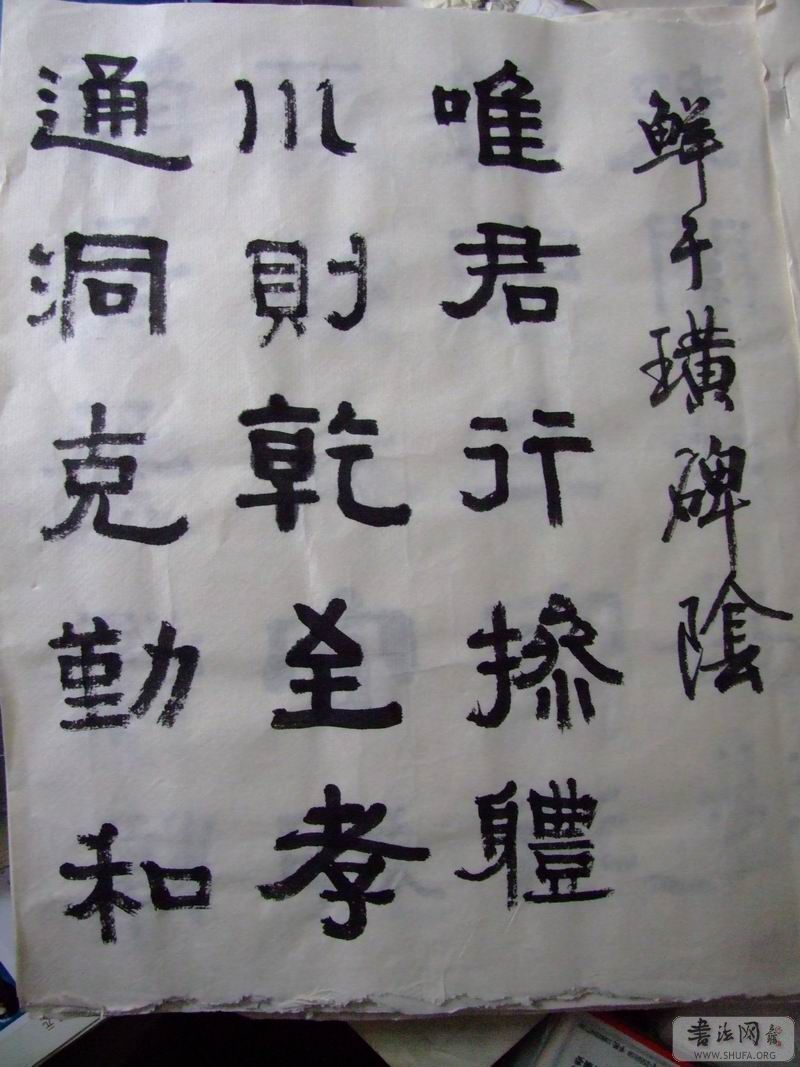 鮮于璜碑陰
唯君行操體
川則乾至孝
通洞克勤和
书法网
WWW.SHUFA.ORG